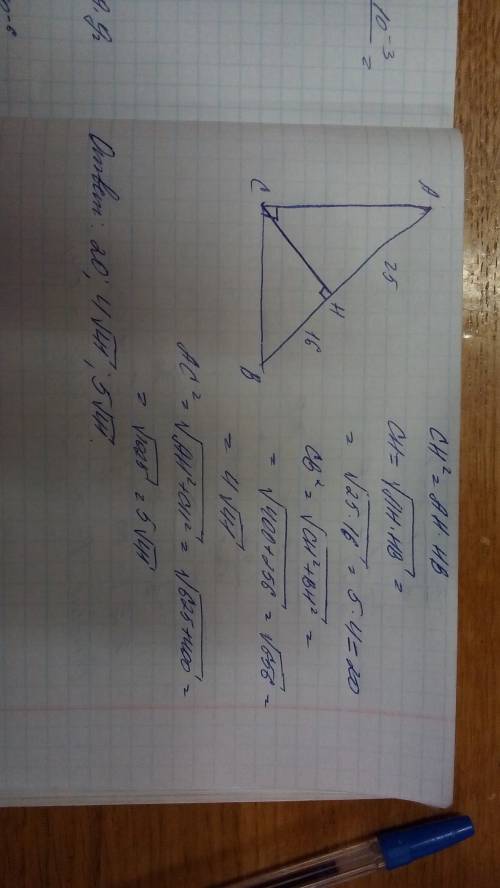 10⁻³
=
A
25
H
16
C
B
CH² = AH · HB
CH = √AH·HB =
= √25·16 = 5·4 = 20
CB² = √CH²+BH² =
= √400+256 = √656 =
= 4√41
AC² = √AH²+CH² = √625+400 =
= √1025 = 5√41
Ответ: 20; 4√41; 5√41.